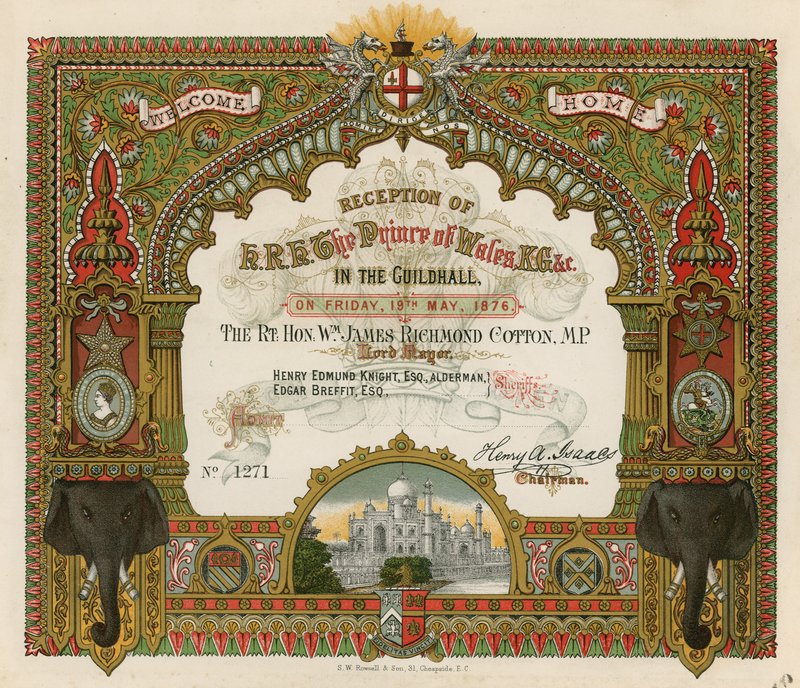 WELCOME HOME
DOMINE DIRIGE NOS
RECEPTION OF
H.R.H. The Prince of Wales, K.G. &c.
IN THE GUILDHALL,
ON FRIDAY, 19TH MAY, 1876,
THE RT. HON. WM. JAMES RICHMOND COTTON, M.P.
Lord Mayor.
HENRY EDMUND KNIGHT, ESQ., ALDERMAN, } Sheriffs.
EDGAR BREFFIT, ESQ.,
Admit
No. 1271
Henry A. Isaacs
Chairman.
S. W. Rowsell & Son, 31, Cheapside, E.C.